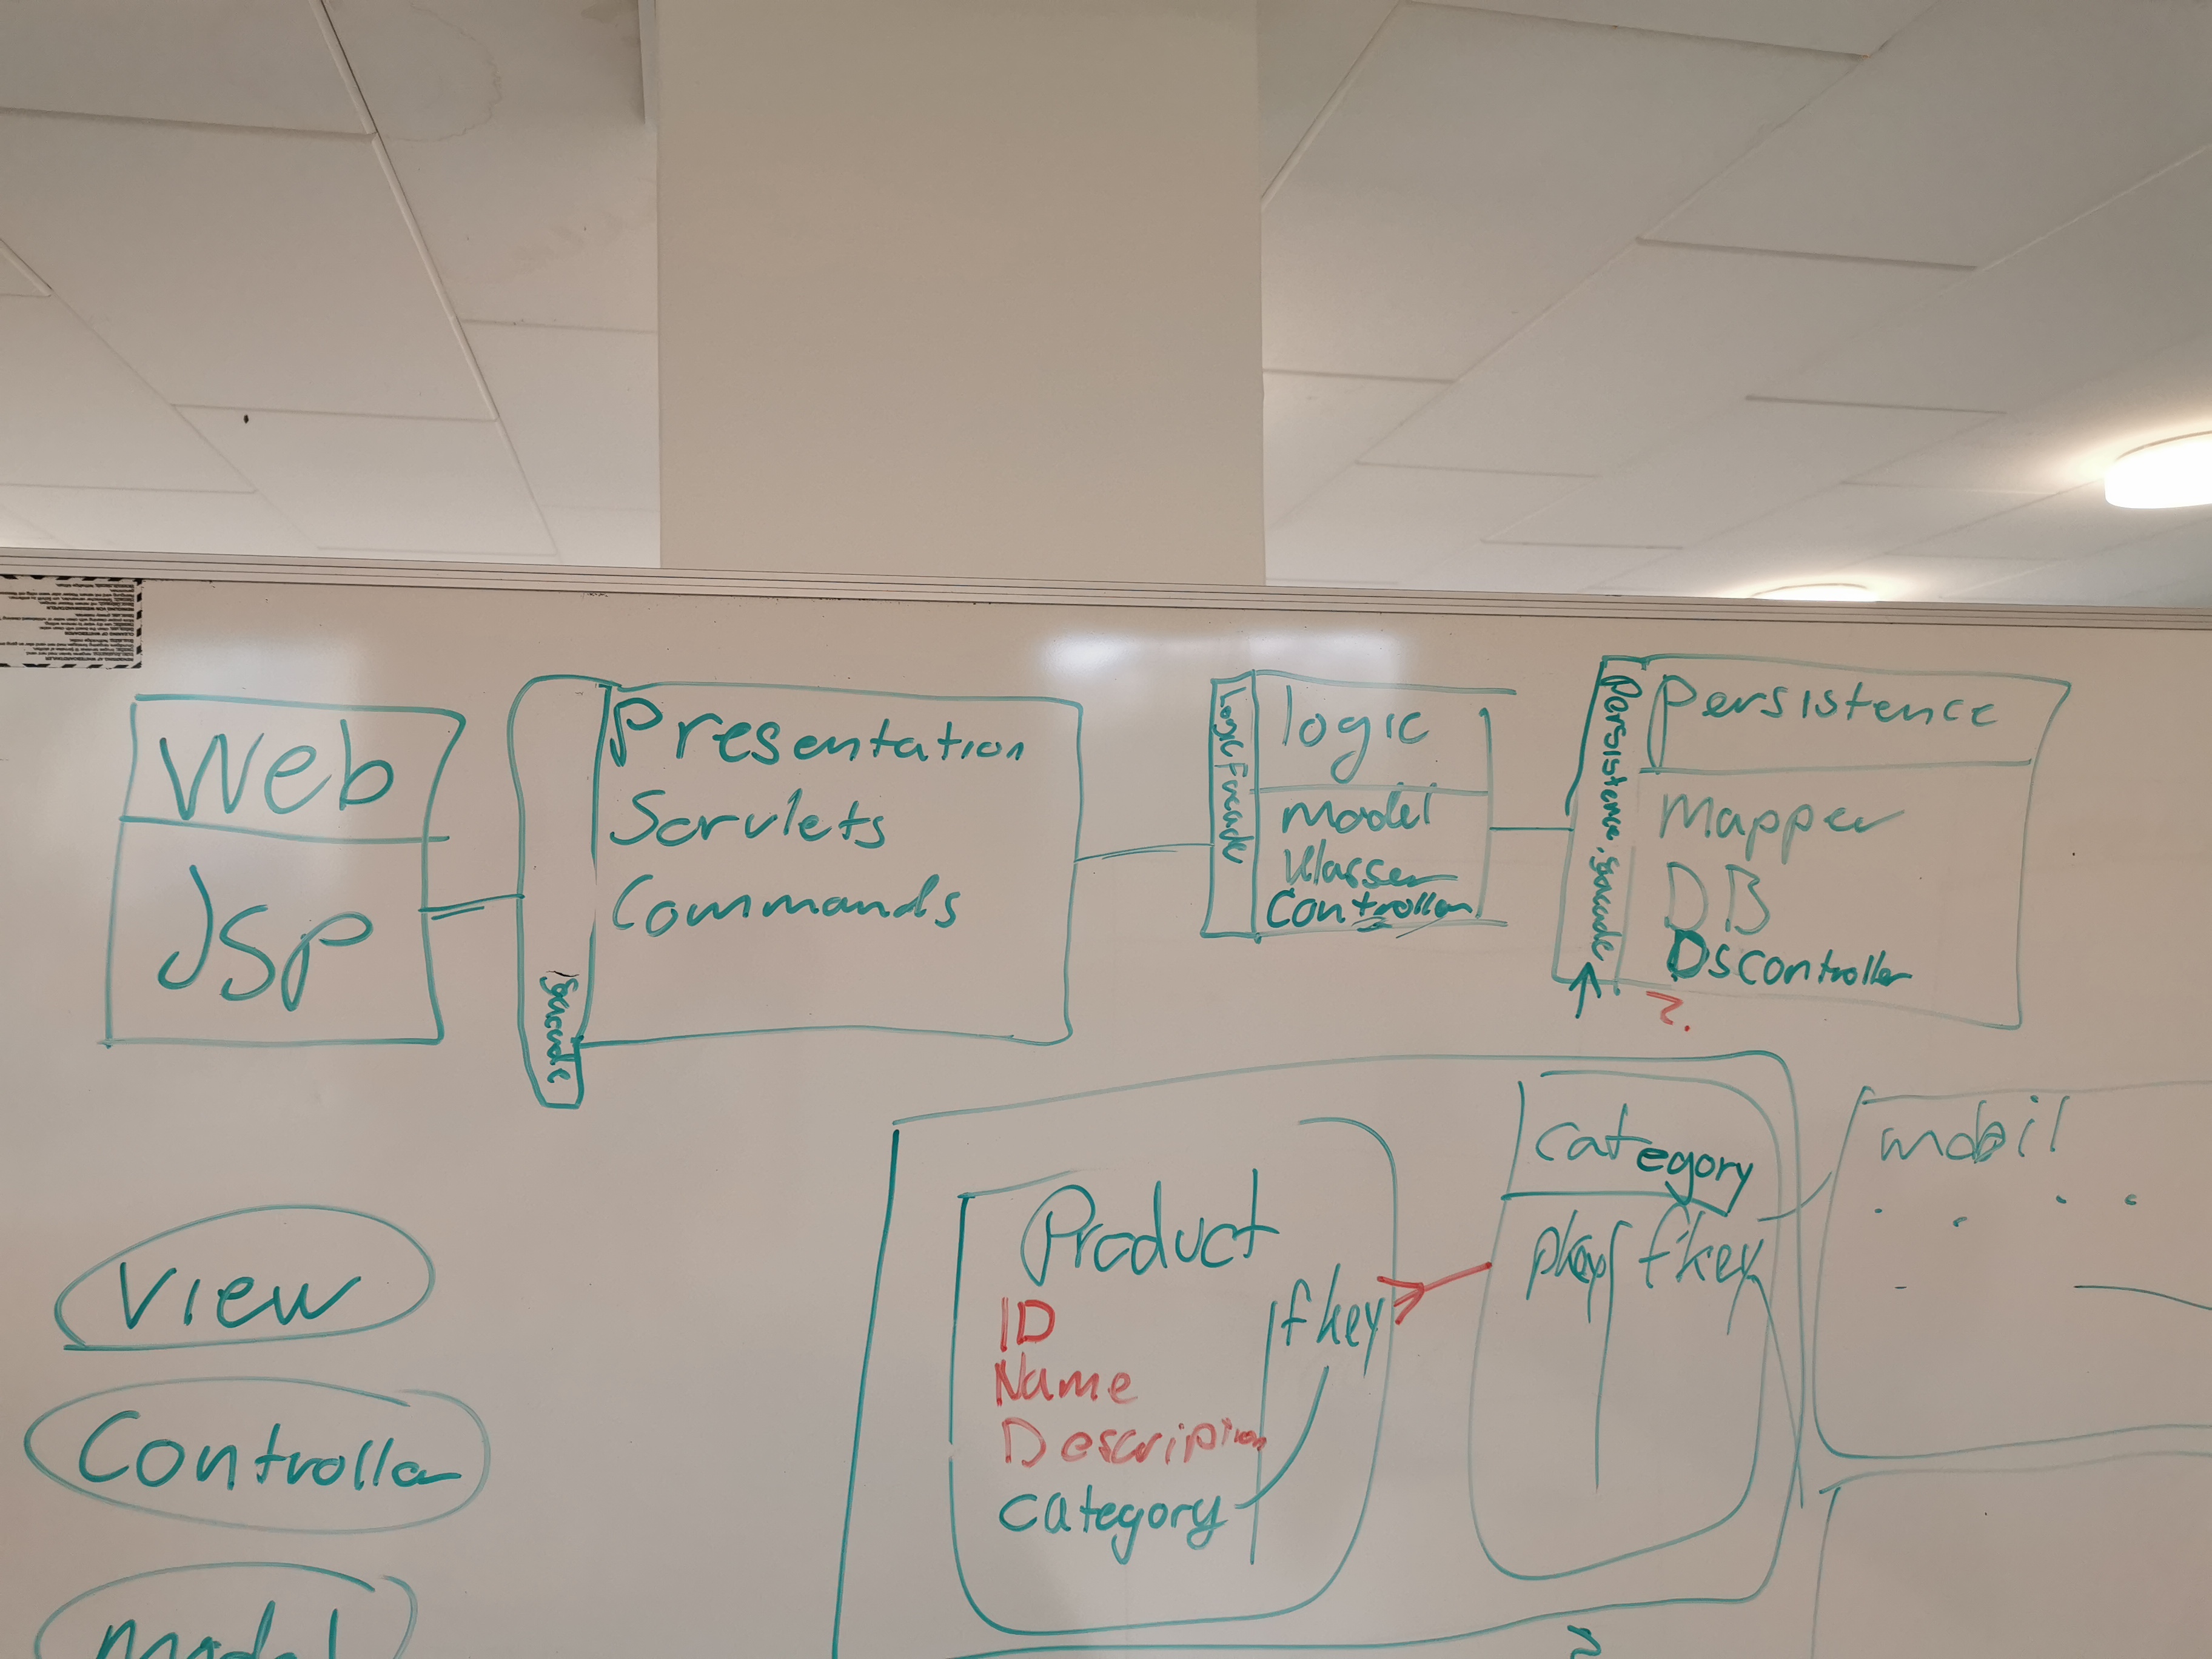 Web
JSP
facade
Presentation
Servlets
Commands
Logic Facade
logic
Model
klasser
Controller
Persistence facade
Persistence
Mapper
DB
DScontroller
?
View
Controller
Model
Product
ID
Name
Description
category
fkey
category
pkey fkey
mobil